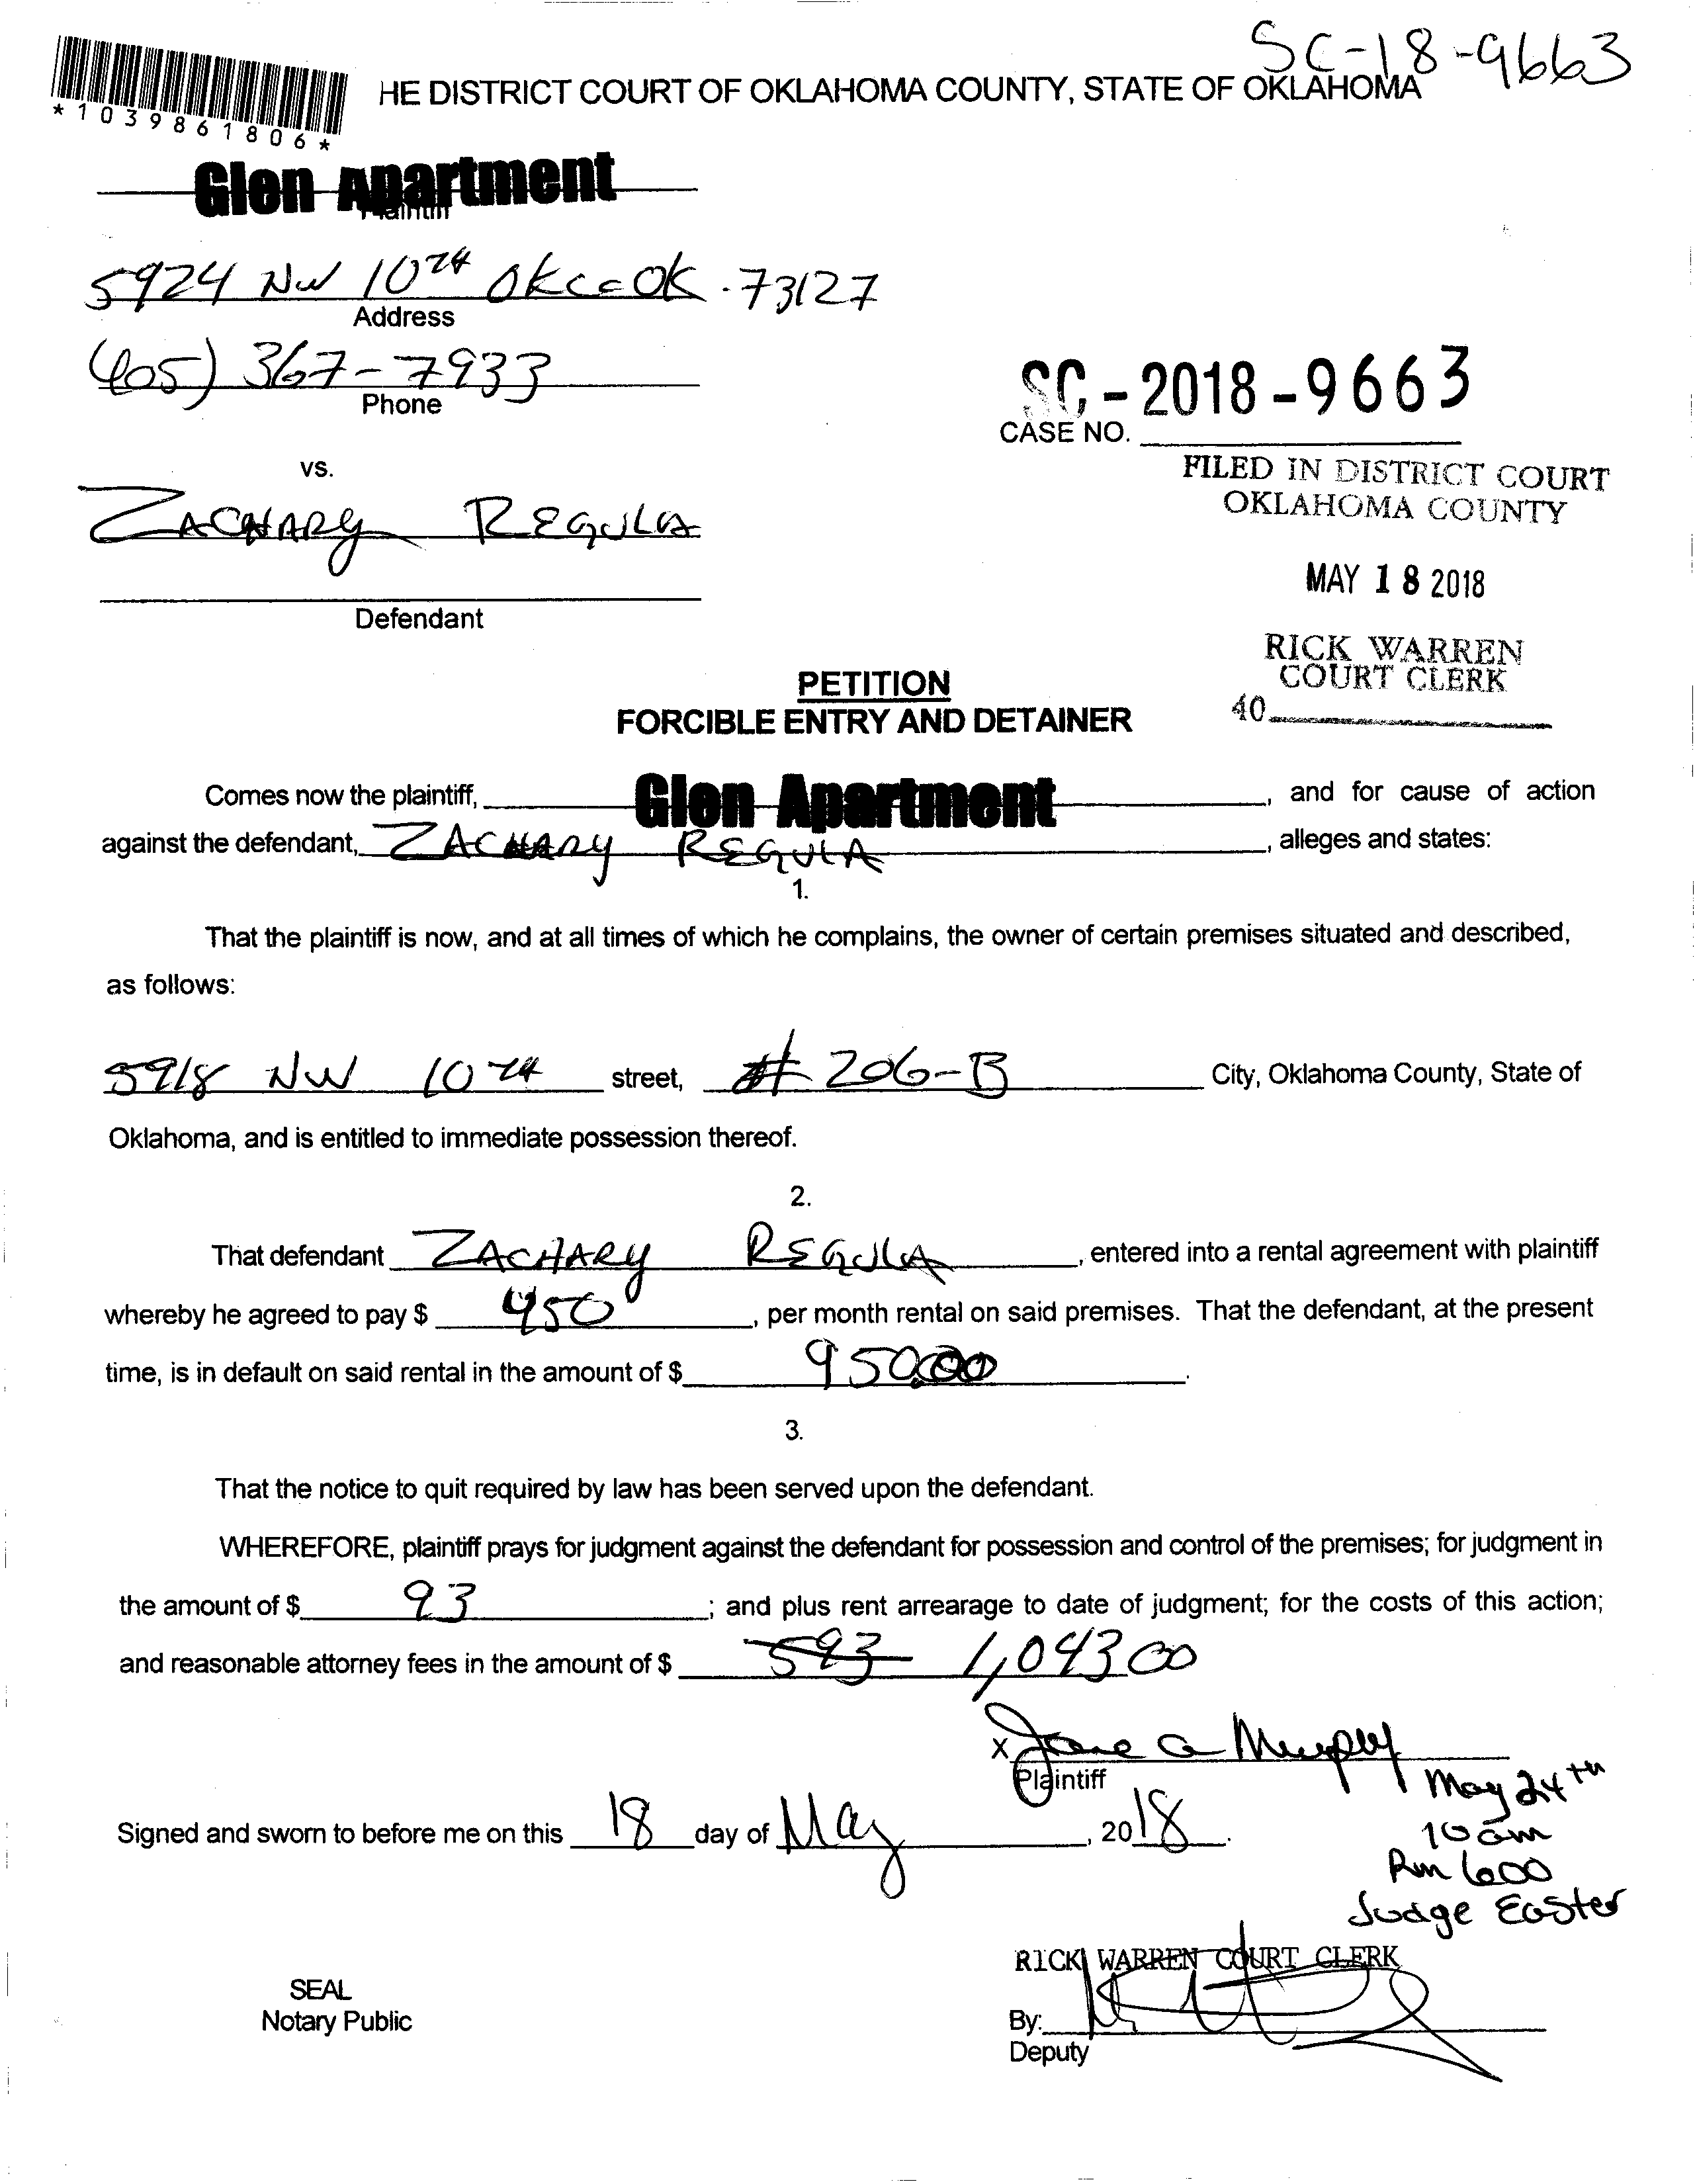 SC-18-9663
HE DISTRICT COURT OF OKLAHOMA COUNTY, STATE OF OKLAHOMA
*1039861806*
Glen Apartment
Plaintiff
5924 NW 10th OKC OK. 73127
Address
(405) 367-7933
Phone
SC-2018-9663
CASE NO.
vs.
FILED IN DISTRICT COURT
OKLAHOMA COUNTY
ZACHARY REGULA
MAY 18 2018
Defendant
RICK WARREN
COURT CLERK
40
PETITION
FORCIBLE ENTRY AND DETAINER
Comes now the plaintiff, Glen Apartment, and for cause of action
against the defendant, ZACHARY REGULA, alleges and states:
1.
That the plaintiff is now, and at all times of which he complains, the owner of certain premises situated and described,
as follows:
5918 NW 10th street, # 206-B City, Oklahoma County, State of
Oklahoma, and is entitled to immediate possession thereof.
2.
That defendant ZACHARY REGULA, entered into a rental agreement with plaintiff
whereby he agreed to pay $ 450, per month rental on said premises. That the defendant, at the present
time, is in default on said rental in the amount of $ 950.00.
3.
That the notice to quit required by law has been served upon the defendant.
WHEREFORE, plaintiff prays for judgment against the defendant for possession and control of the premises; for judgment in
the amount of $ 93; and plus rent arrearage to date of judgment; for the costs of this action;
and reasonable attorney fees in the amount of $ 593 1,043 00
x Jane a Murphy
Plaintiff
May 24th
10am
Rm 600
Judge Easter
Signed and sworn to before me on this 18 day of May, 2018.
RICK WARREN COURT CLERK
SEAL
Notary Public
By:
Deputy